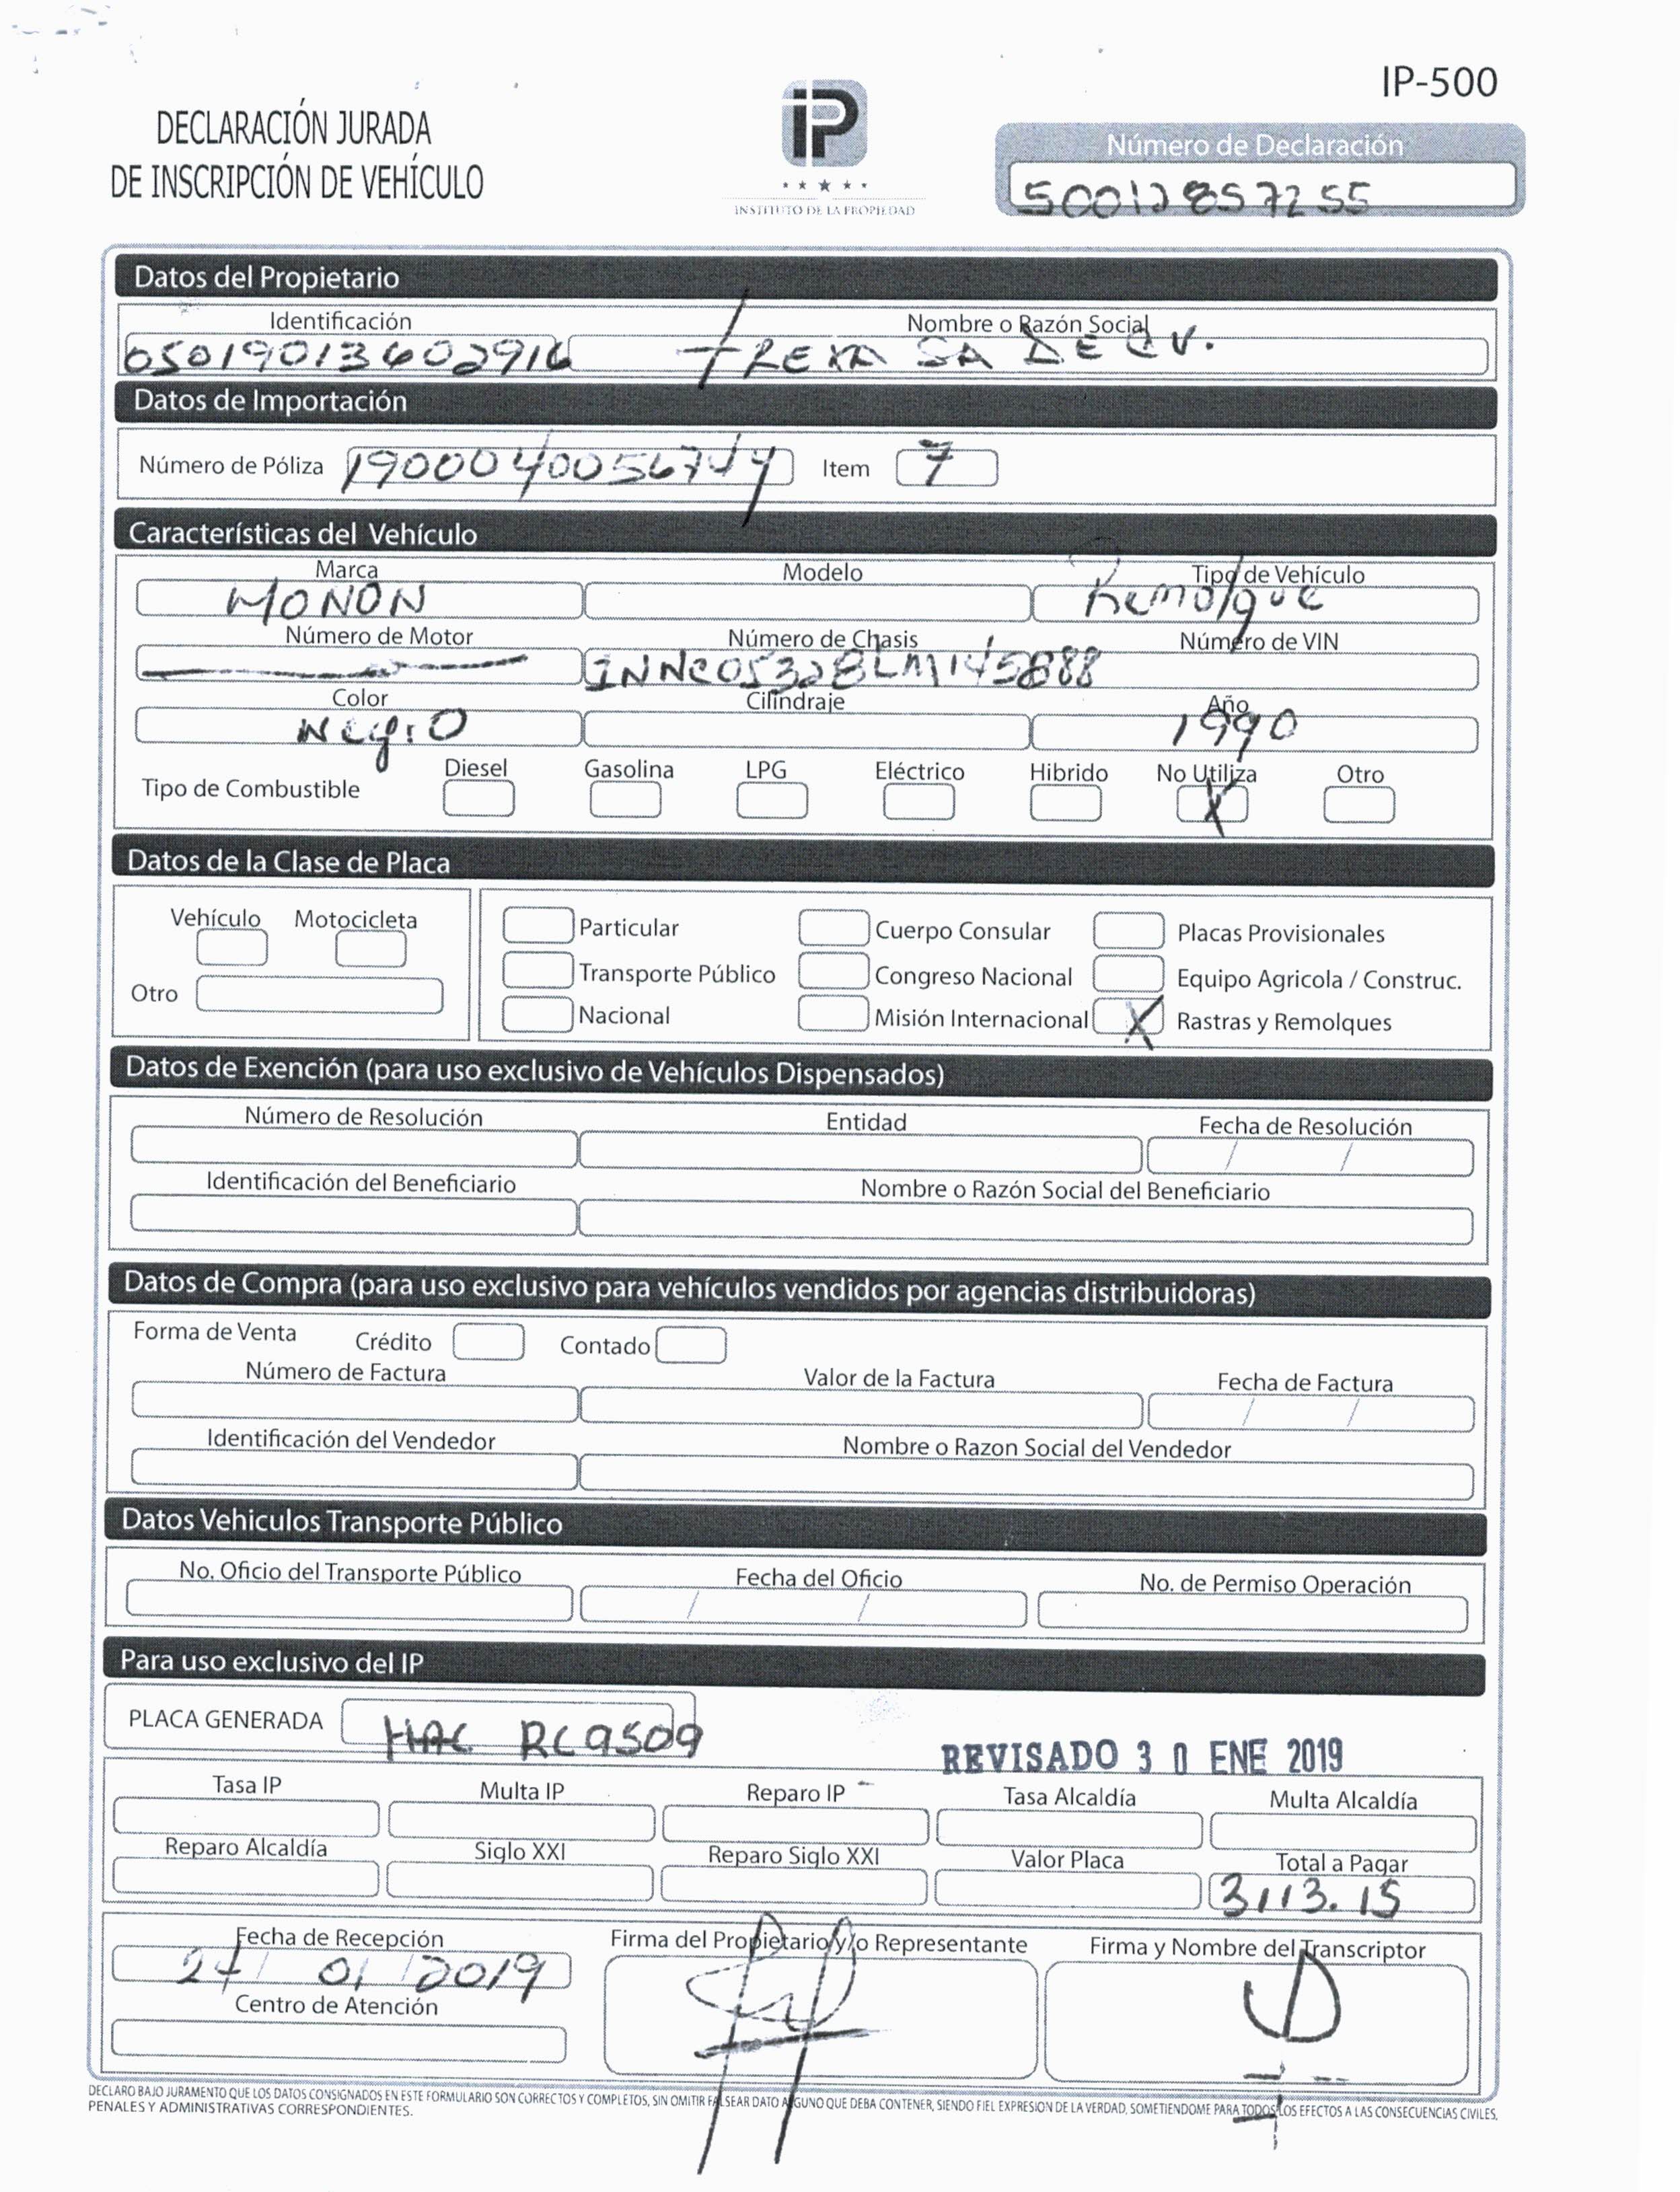 IP-500
DECLARACIÓN JURADA
DE INSCRIPCIÓN DE VEHÍCULO
iP
INSTITUTO DE LA PROPIEDAD
Número de Declaración
50012857255
Datos del Propietario
Identificación Nombre o Razón Social
05019013602916 TREXA SA DE CV.
Datos de Importación
Número de Póliza Item 7
Características del Vehículo
Marca Modelo Tipo de Vehículo
MONON Remolque
Número de Motor Número de Chasis Número de VIN
1NNC05328LM145888
Color Cilindraje Año
Negro 1990
Diesel Gasolina LPG Eléctrico Hibrido No Utiliza Otro
Tipo de Combustible X
Datos de la Clase de Placa
Vehículo Motocicleta
Otro
Particular Cuerpo Consular Placas Provisionales
Transporte Público Congreso Nacional Equipo Agricola / Construc.
Nacional Misión Internacional X Rastras y Remolques
Datos de Exención (para uso exclusivo de Vehículos Dispensados)
Número de Resolución Entidad Fecha de Resolución
/ /
Identificación del Beneficiario Nombre o Razón Social del Beneficiario
Datos de Compra (para uso exclusivo para vehículos vendidos por agencias distribuidoras)
Forma de Venta Crédito Contado
Número de Factura Valor de la Factura Fecha de Factura
/ /
Identificación del Vendedor Nombre o Razon Social del Vendedor
Datos Vehiculos Transporte Público
No. Oficio del Transporte Público Fecha del Oficio No. de Permiso Operación
/ /
Para uso exclusivo del IP
PLACA GENERADA HAC RC9509
REVISADO 30 ENE 2019
Tasa IP Multa IP Reparo IP Tasa Alcaldía Multa Alcaldía
Reparo Alcaldía Siglo XXI Reparo Siglo XXI Valor Placa Total a Pagar
3113.15
Fecha de Recepción Firma del Propietario y/o Representante Firma y Nombre del Transcriptor
01/2019
Centro de Atención
DECLARO BAJO JURAMENTO QUE LOS DATOS CONSIGNADOS EN ESTE FORMULARIO SON CORRECTOS Y COMPLETOS, SIN OMITIR FALSEAR DATO ALGUNO QUE DEBA CONTENER, SIENDO FIEL EXPRESION DE LA VERDAD, SOMETIENDOME PARA TODOS LOS EFECTOS A LAS CONSECUENCIAS CIVILES,
PENALES Y ADMINISTRATIVAS CORRESPONDIENTES.